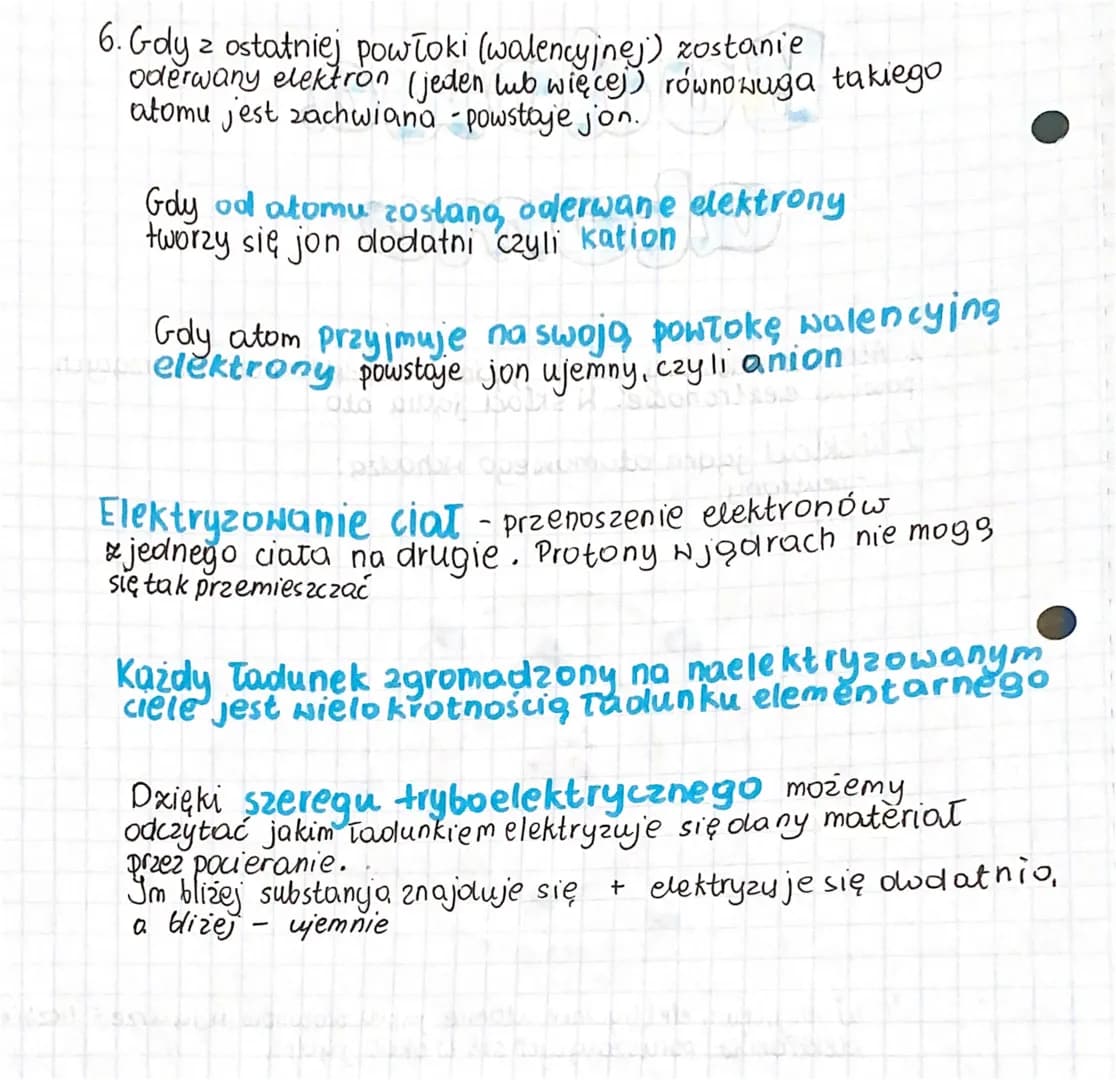 6. Gdy z ostatniej powłoki (walencyjnej) zostanie
oderwany elektron (jeden lub więcej) równowaga takiego
atomu jest zachwiana - powstaje jon.
Gdy od atomu zostaną oderwane elektrony
tworzy się jon dodatni czyli kation
Gdy atom przyjmuje na swoją powłokę walencyjną
elektrony powstaje jon ujemny, czyli anion
Elektryzowanie ciał - przenoszenie elektronów
z jednego ciała na drugie. Protony w jądrach nie mogą
się tak przemieszczać
Każdy ładunek zgromadzony na naelektryzowanym
ciele jest wielokrotnością ładunku elementarnego
Dzięki szeregu tryboelektrycznego możemy
odczytać jakim ładunkiem elektryzuje się dany materiał
przez pocieranie.
Im bliżej substancja znajduje się + elektryzuje się dodatnio,
a bliżej - ujemnie